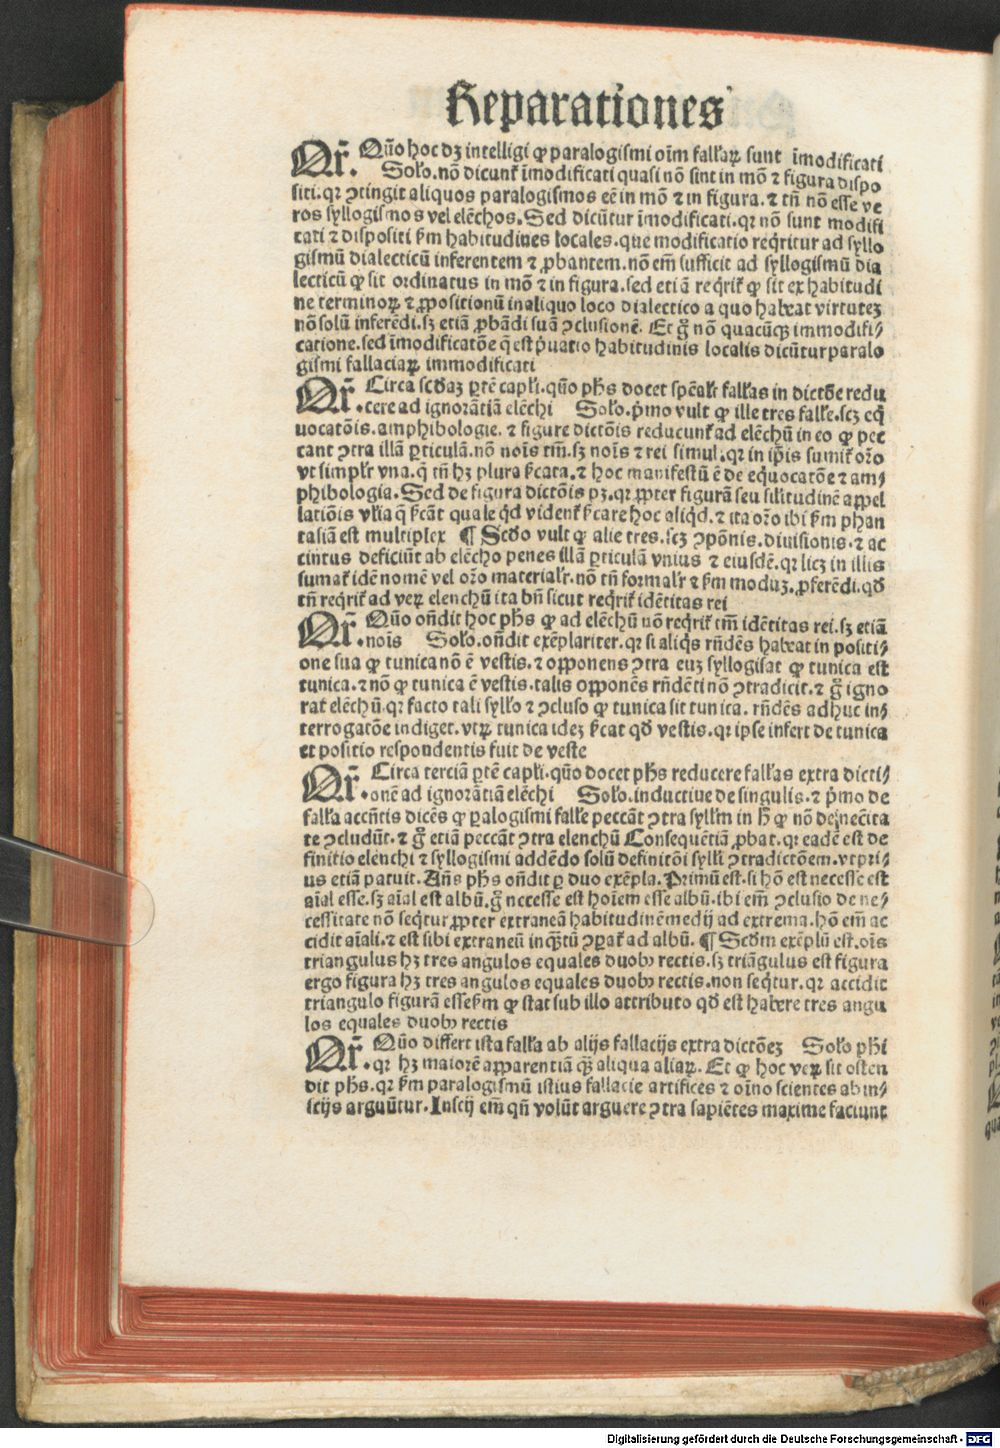 Reparationes
Qr̄. Quō hoc dȝ intelligi ꝙ paralogismi oīm fallaꝝ sunt īmodificati
Solo. nō dicunt̉ īmodificati quasi nō sint in mō ⁊ figura dispo
siti. qr ↄtingit aliquos paralogismos eē in mō ⁊ in figura. ⁊ tn̄ nō esse ve
ros syllogismos vel elēchos. Sed dicūtur īmodificati. qr nō sunt modifi
cati ⁊ dispositi ẜm habitudines locales. que modificatio reqͥritur ad syllo
gismū dialecticū inferentem ⁊ ꝓbantem. nō em̄ sufficit ad syllogismū dia
lecticū ꝙ sit ordinatus in mō ⁊ in figura. sed etiā reqͥrit̉ ꝙ sit ex habitudi
ne terminoꝝ ⁊ ꝓpositionū in aliquo loco dialectico a quo habeat virtuteȝ
nō solū inferēdi. sȝ etiā ꝓbādi suā ↄclusionē. Et gͦ nō quacūqȝ immodifi⸗
catione. sed īmodificatōe q̄ est pͥuatio habitudinis localis dicūtur paralo
gismi fallaciaꝝ immodificati
Qr̄. Circa scd̓aȝ ꝑtē capl̓i. quō ph̓s docet spēalr̓ fallȧs in dictōe redu
cere ad ignorātiā elēchi Solo. pͥmo vult ꝙ ille tres falle. scȝ eq̄
uocatōis. amphibologie. ⁊ figure dictōis reducunt̉ ad elēchū in eo ꝙ pec
cant ↄtra illā ꝑticulā. nō noīs tm̄. sȝ noīs ⁊ rei simul. qr in ip̄is sumit̉ oro
vt simplr̓ vna. q̄ tn̄ hȝ plura ẜcata. ⁊ hoc manifestū ē de equocatōe ⁊ am⸗
phibologia. Sed de figura dictōis pȝ. qr ꝓpter figurā seu sil̓itudinē appel
latiōis vl̓ia q̄ ẜcāt quale qͥd vident̉ ẜcare hoc aliqͥd. ⁊ ita oro ibi ẜm phan
tasiā est multiplex ¶ Scd̓o vult ꝙ alie tres. scȝ ↄpōnis. diuisionis. ⁊ ac
centus deficiūt ab elēcho penes illā ꝑticulā vnius ⁊ eiusdē. qr licȝ in illis
sumat̉ idē nomē vel oro materialr̓. nō tn̄ formalr̓ ⁊ ẜm moduȝ. ꝓferēdi. qd̓
tn̄ reqͥrit̉ ad veꝝ elenchū ita bn̄ sicut reqͥrit̉ idētitas rei
Qr̄. Quō on̄dit hoc ph̓s ꝙ ad elēchū nō reqͥrit̉ tm̄ idētitas rei. sȝ etiā
nois Solo. on̄dit exēplariter. qr si aliqͥs rn̄dēs habeat in positi⸗
one sua ꝙ tunica nō ē vestis. ⁊ opponens ↄtra euȝ syllogisat ꝙ tunica est
tunica. ⁊ nō ꝙ tunica ē vestis. talis opponēs rn̄dēti nō ↄtradicit. ⁊ gͦ igno
rat elēchū. qr facto tali syllo ⁊ ↄcluso ꝙ tunica sit tunica. rn̄dēs adhuc in⸗
terrogatōe indiget. vtꝝ tunica ideȝ ẜcat qd̓ vestis. qr ipse infert de tunica
et positio respondentis fuit de veste
Qr̄. Circa terciā ꝑtē capl̓i. quō docet ph̓s reducere fallȧs extra dicti⸗
onē ad ignorātiā elēchi Solo. inductiue de singulis. ⁊ pͥmo de
falla accn̄tis dicēs ꝙ ꝑalogismi falle peccāt ↄtra syllm̄ in hͦ ꝙ nō de necīta
te ↄcludūt. ⁊ gͦ etiā peccāt ↄtra elenchū Consequētiā ꝓbat. qr eadē est de
finitio elenchi ⁊ syllogismi addēdo solū definitōi sylli ↄtradictōem. vt pri⸗
us etiā patuit. An̄s ph̓s on̄dit ꝑ duo exēpla. Primū est. si hō est necesse est
aīal esse. sȝ aīal est albū. gͦ necesse est hoīem esse albū. ibi em̄ ↄclusio de ne⸗
cessitate nō seqͥtur ꝓpter extraneā habitudinē medij ad extrema. hō em̄ ac
cidit aīali. ⁊ est sibi extraneū inqͣȝtū ↄꝑat̉ ad albū. ¶ Scd̓m exēplū est. oīs
triangulus hȝ tres angulos equales duobꝰ rectis. sȝ triāgulus est figura
ergo figura hȝ tres angulos equales duobꝰ rectis. non seqͥtur. qr accidit
triangulo figurā esse ẜm ꝙ stat sub illo attributo qd̓ est habere tres angu
los equales duobꝰ rectis
Qr̄. Quō differt ista falla ab alijs fallacijs extra dictōeȝ Solo ph̓i
. qr hȝ maiorē apparentiā qͣȝ aliqua aliaꝝ. Et ꝙ hoc veꝝ sit osten
dit ph̓s. qr ẜm paralogismū istius fallacie artifices ⁊ oīno scientes ab in⸗
scijs arguūtur. Inscij em̄ qn̄ volūt arguere ↄtra sapiētes maxime faciunt
Digitalisierung gefördert durch die Deutsche Forschungsgemeinschaft - DFG